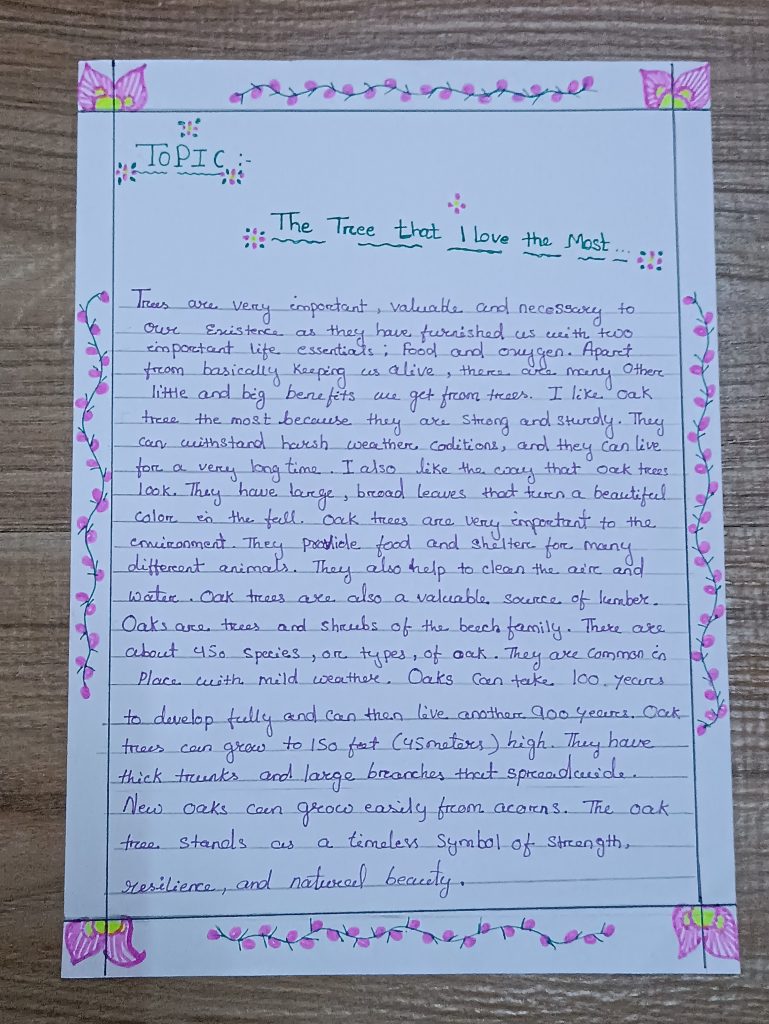 TOPIC :-
The Tree that I love the Most...
Trees are very important, valuable and necessary to
our existence as they have furnished us with two
important life essentials; food and oxygen. Apart
from basically keeping us alive, there are many other
little and big benefits we get from trees. I like oak
tree the most because they are strong and sturdy. They
can withstand harsh weather coditions, and they can live
for a very long time. I also like the way that oak trees
look. They have large, broad leaves that turn a beautiful
color in the fall. Oak trees are very important to the
environment. They provide food and shelter for many
different animals. They also help to clean the air and
water. Oak trees are also a valuable source of lumber.
Oaks are trees and shrubs of the beech family. There are
about 450 species, or types, of oak. They are common in
Place with mild weather. Oaks can take 100 years
to develop fully and can then live another 900 years. Oak
trees can grow to 150 feet (45 meters) high. They have
thick trunks and large branches that spread wide.
New oaks can grow easily from acorns. The oak
tree stands as a timeless symbol of strength,
resilience, and natural beauty.